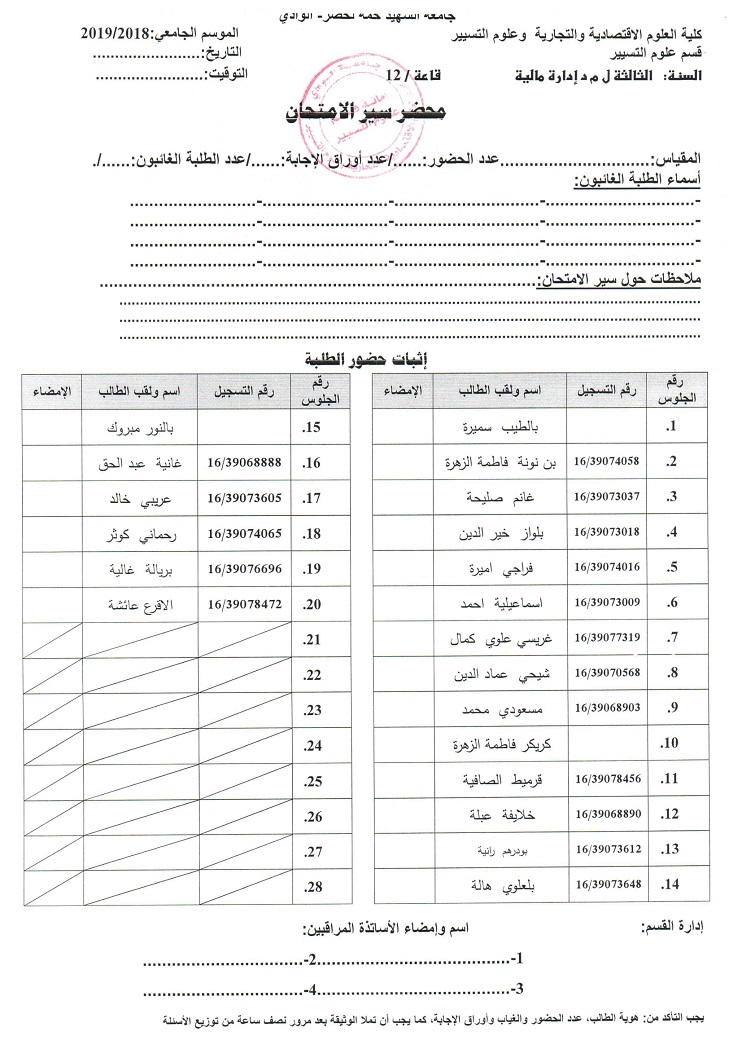 جامعة الشهيد حمه لخضر- الوادي
كلية العلوم الاقتصادية والتجارية وعلوم التسيير
الموسم الجامعي:2019/2018
قسم علوم التسيير
التاريخ:........................
السنة: الثالثة ل م د إدارة مالية
قاعة / 12
التوقيت:........................
محضر سير الامتحان
المقياس:............................عدد الحضور:....../عدد أوراق الإجابة:....../عدد الطلبة الغائبون:....../.
أسماء الطلبة الغائبون:
-............................-............................-............................-............................
-............................-............................-............................-............................
-............................-............................-............................-............................
-............................-............................-............................-............................
ملاحظات حول سير الامتحان:................................................................................
................................................................................................................
................................................................................................................
................................................................................................................
إثبات حضور الطلبة
رقم الجلوس رقم التسجيل اسم ولقب الطالب الإمضاء
1. بالطيب سميرة
2. 16/39074058 بن نونة فاطمة الزهرة
3. 16/39073037 غانم صليحة
4. 16/39073018 بلواز خير الدين
5. 16/39074016 فراجي اميرة
6. 16/39073009 اسماعيلية احمد
7. 16/39077319 غريسي علوي كمال
8. 16/39070568 شيحي عماد الدين
9. 16/39068903 مسعودي محمد
10. كريكر فاطمة الزهرة
11. 16/39078456 قرميط الصافية
12. 16/39068890 خلايفة عبلة
13. 16/39073612 بودرهم رانية
14. 16/39073648 بلعلوي هالة
رقم الجلوس رقم التسجيل اسم ولقب الطالب الإمضاء
15. بالنور مبروك
16. 16/39068888 غانية عبد الحق
17. 16/39073605 عريبي خالد
18. 16/39074065 رحماني كوثر
19. 16/39076696 بريالة غالية
20. 16/39078472 الاقرع عائشة
21.
22.
23.
24.
25.
26.
27.
28.
إدارة القسم:
اسم وإمضاء الأساتذة المراقبين:
1-........................................2-........................................
3-........................................4-........................................
يجب التأكد من: هوية الطالب، عدد الحضور والغياب وأوراق الإجابة، كما يجب أن تملا الوثيقة بعد مرور نصف ساعة من توزيع الأسئلة